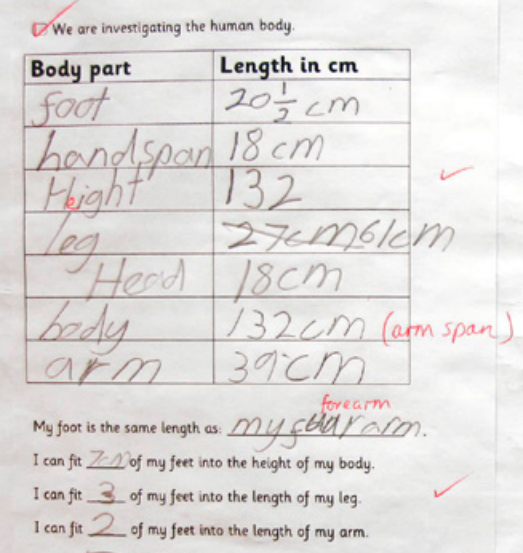 We are investigating the human body.
Body part Length in cm
foot 20 1/2 cm
handspan 18 cm
Height 132
leg 27cm 61cm
Head 18cm
body 132cm (arm span)
arm 39cm
forearm
My foot is the same length as: my arm.
I can fit of my feet into the height of my body.
I can fit 3 of my feet into the length of my leg.
I can fit 2 of my feet into the length of my arm.